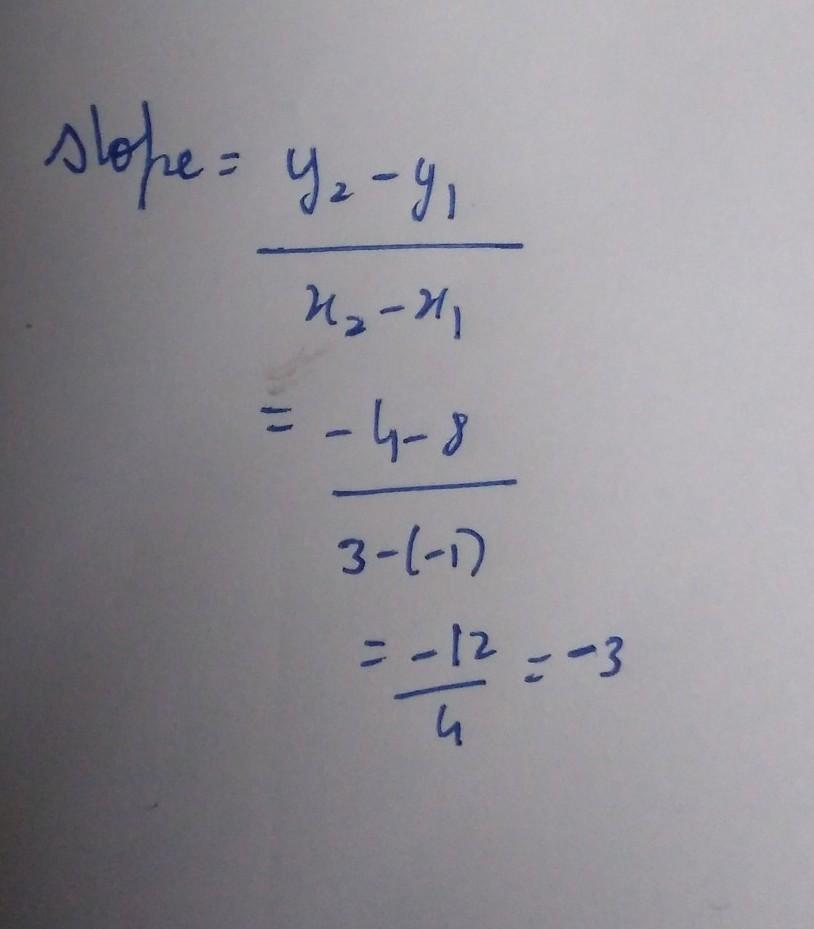 slope = y₂ - y₁
x₂ - x₁
= -4-8
3-(-1)
= -12 = -3
4